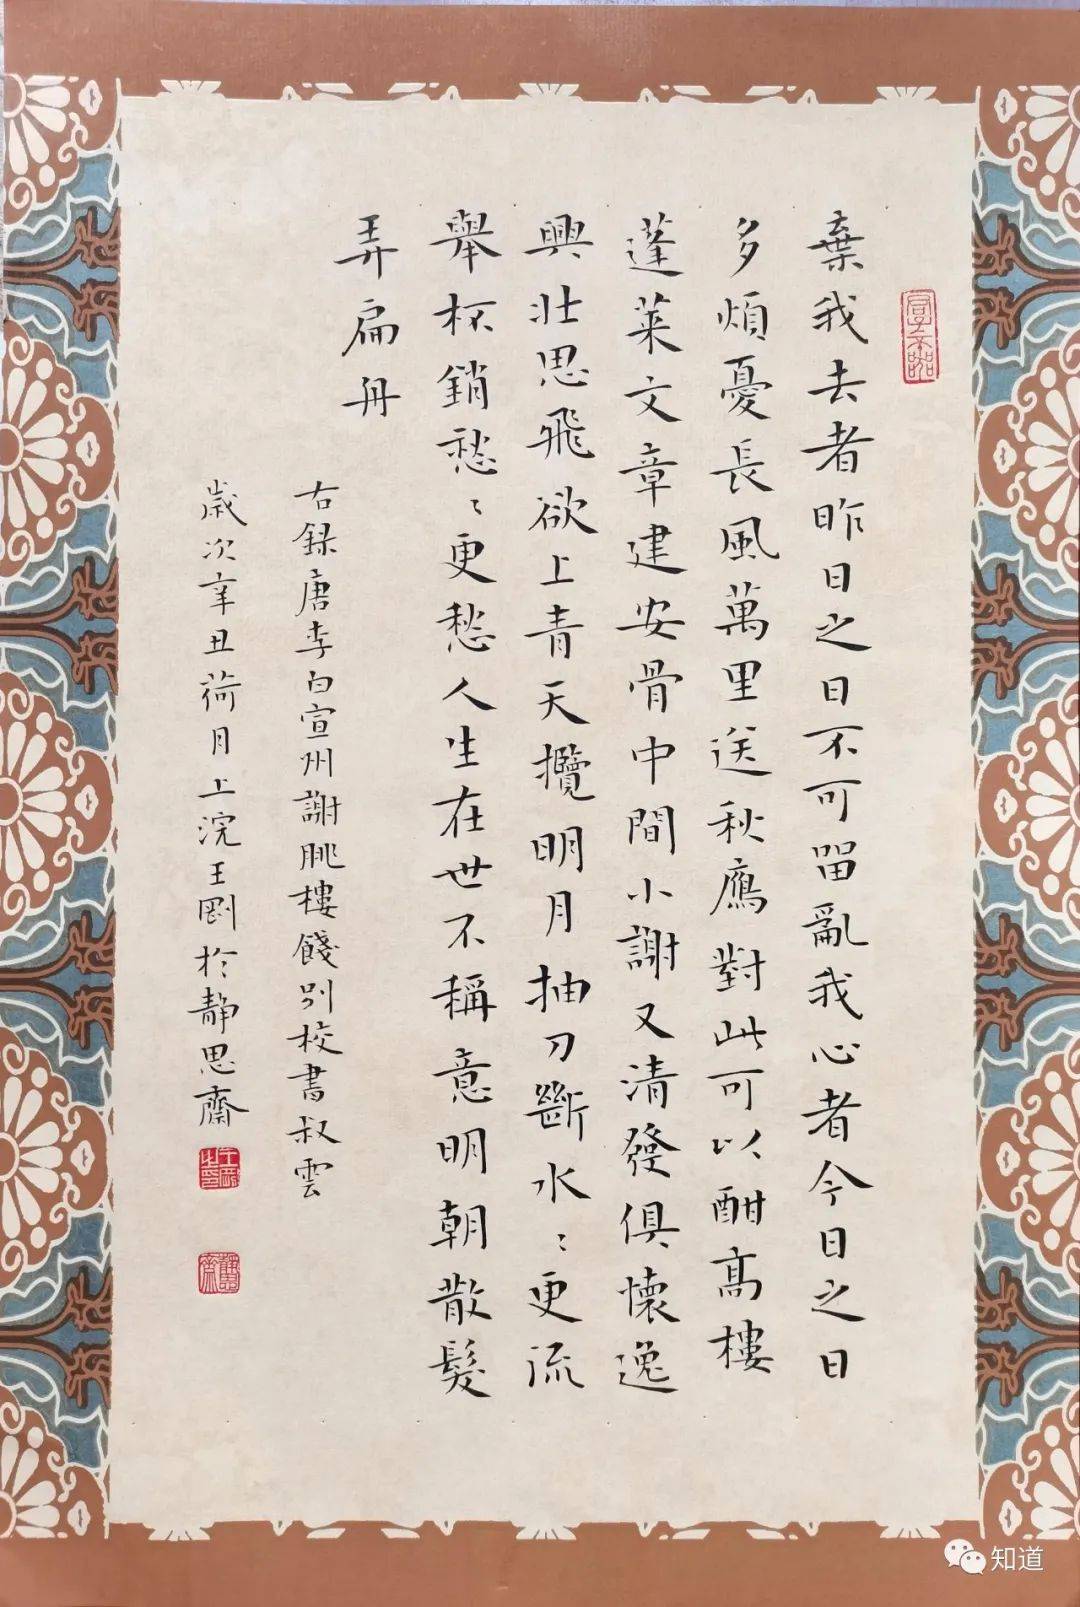 棄我去者昨日之日不可留亂我心者今日之日
多煩憂長風萬里送秋鴈對此可以酣高樓
蓬萊文章建安骨中間小謝又清發俱懷逸
興壯思飛欲上青天攬明月抽刀斷水〻更流
舉杯銷愁〻更愁人生在世不稱意明朝散髮
弄扁舟
右録唐李白宣州謝朓樓餞别校書叔雲
歲次辛丑荷月上浣王剛於靜思齋
知道